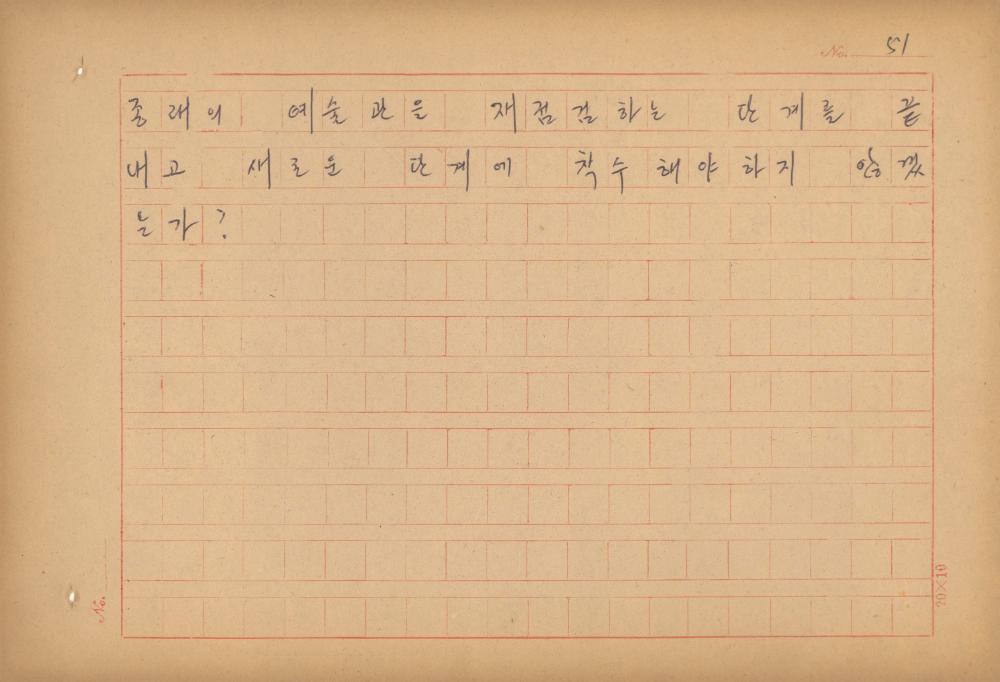 No. 51
종래의 예술관을 재점검하는 단계를 끝
내고 새로운 단계에 착수해야하지 않겠
는가?
No.
20×10